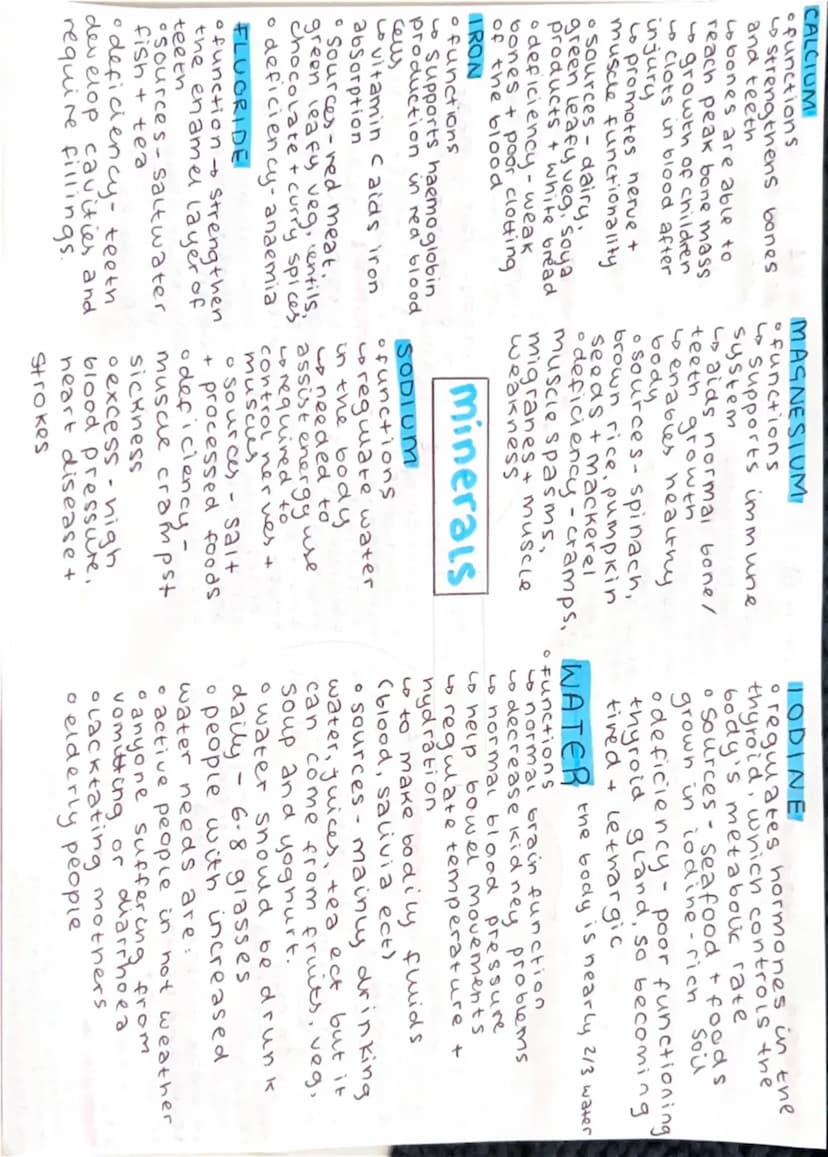 CALCIUM
o functions
↳ strengthens bones
and teeth
↳ bones are able to
reach peak bone mass
↳ growth of children
↳ clots in blood after
injury
↳ promotes nerve +
muscle functionality
o sources - dairy,
green leafy veg, soya
products + white bread
o deficiency - weak
bones + poor clotting
of the blood
IRON
o functions
↳ supports haemoglobin
production in red blood
cells
↳ vitamin C aids iron
absorption
o sources - red meat.
green leafy veg, lentils,
chocolate + curry spices
o deficiency - anaemia
FLUORIDE
o function → strengthen
the enamel layer of
teeth
o sources - saltwater
fish + tea
o deficiency - teeth
develop cavities and
require fillings.
MAGNESIUM
o functions
↳ supports immune
system
↳ aids normal bone/
teeth growth
↳ enables healthy
body
o sources - spinach,
brown rice, pumpkin
seeds + mackerel
o deficiency - cramps,
muscle spasms,
migranes + muscle
weakness
minerals
SODIUM
o functions
↳ regulate water
in the body
↳ needed to
assist energy use
↳ required to
control nerves +
muscles
o sources - salt
+ processed foods
o deficiency -
muscle cramps +
sickness
o excess - high
blood pressure,
heart disease +
strokes
IODINE
o regulates hormones in the
thyroid, which controls the
body's metabolic rate
o sources - seafood + foods
grown in iodine-rich soil
o deficiency - poor functioning
thyroid gland, so becoming
tired + letharic
WATER the body is nearly 2/3 water
o functions
↳ normal brain function
↳ decrease kidney problems
↳ normal blood pressure
↳ help bowel movements
↳ regulate temperature +
hydration
↳ to make bodily fluids
(blood, salivia ect)
o sources - mainly drinking
water, juices, tea ect but it
can come from fruits, veg,
soup and yoghurt.
o water should be drunk
daily - 6-8 glasses
o people with increased
water needs are:
o active people in hot weather
o anyone suffering from
vomitting or diarrhoea
o lacktating mothers
o elderly people